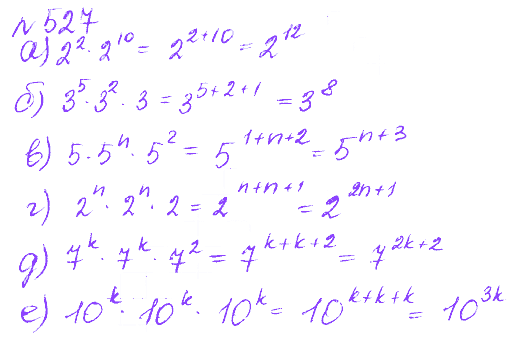 № 527
а) 2² · 2¹⁰ = 2²⁺¹⁰ = 2¹²
б) 3⁵ · 3² · 3 = 3⁵⁺²⁺¹ = 3⁸
в) 5 · 5ⁿ · 5² = 5¹⁺ⁿ⁺² = 5ⁿ⁺³
г) 2ⁿ · 2ⁿ · 2 = 2ⁿ⁺ⁿ⁺¹ = 2²ⁿ⁺¹
д) 7ᵏ · 7ᵏ · 7² = 7ᵏ⁺ᵏ⁺² = 7²ᵏ⁺²
е) 10ᵏ · 10ᵏ · 10ᵏ = 10ᵏ⁺ᵏ⁺ᵏ = 10³ᵏ